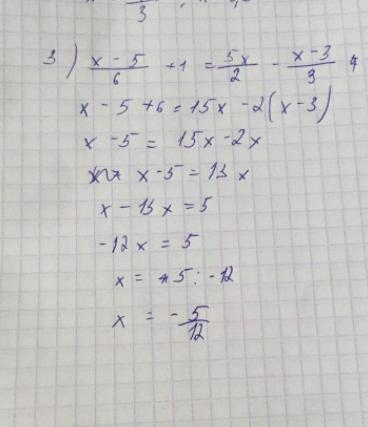 3
3) x - 5/6 + 1 = 5x/2 - x-3/3
x - 5 + 6 = 15x - 2(x - 3)
x - 5 = 15x - 2x
x - 5 = 13x
x - 13x = 5
-12x = 5
x = 5 : -12
x = - 5/12